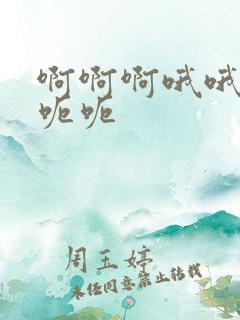 啊啊啊哦哦
呃呃
周玉婷
未经同意禁止转载